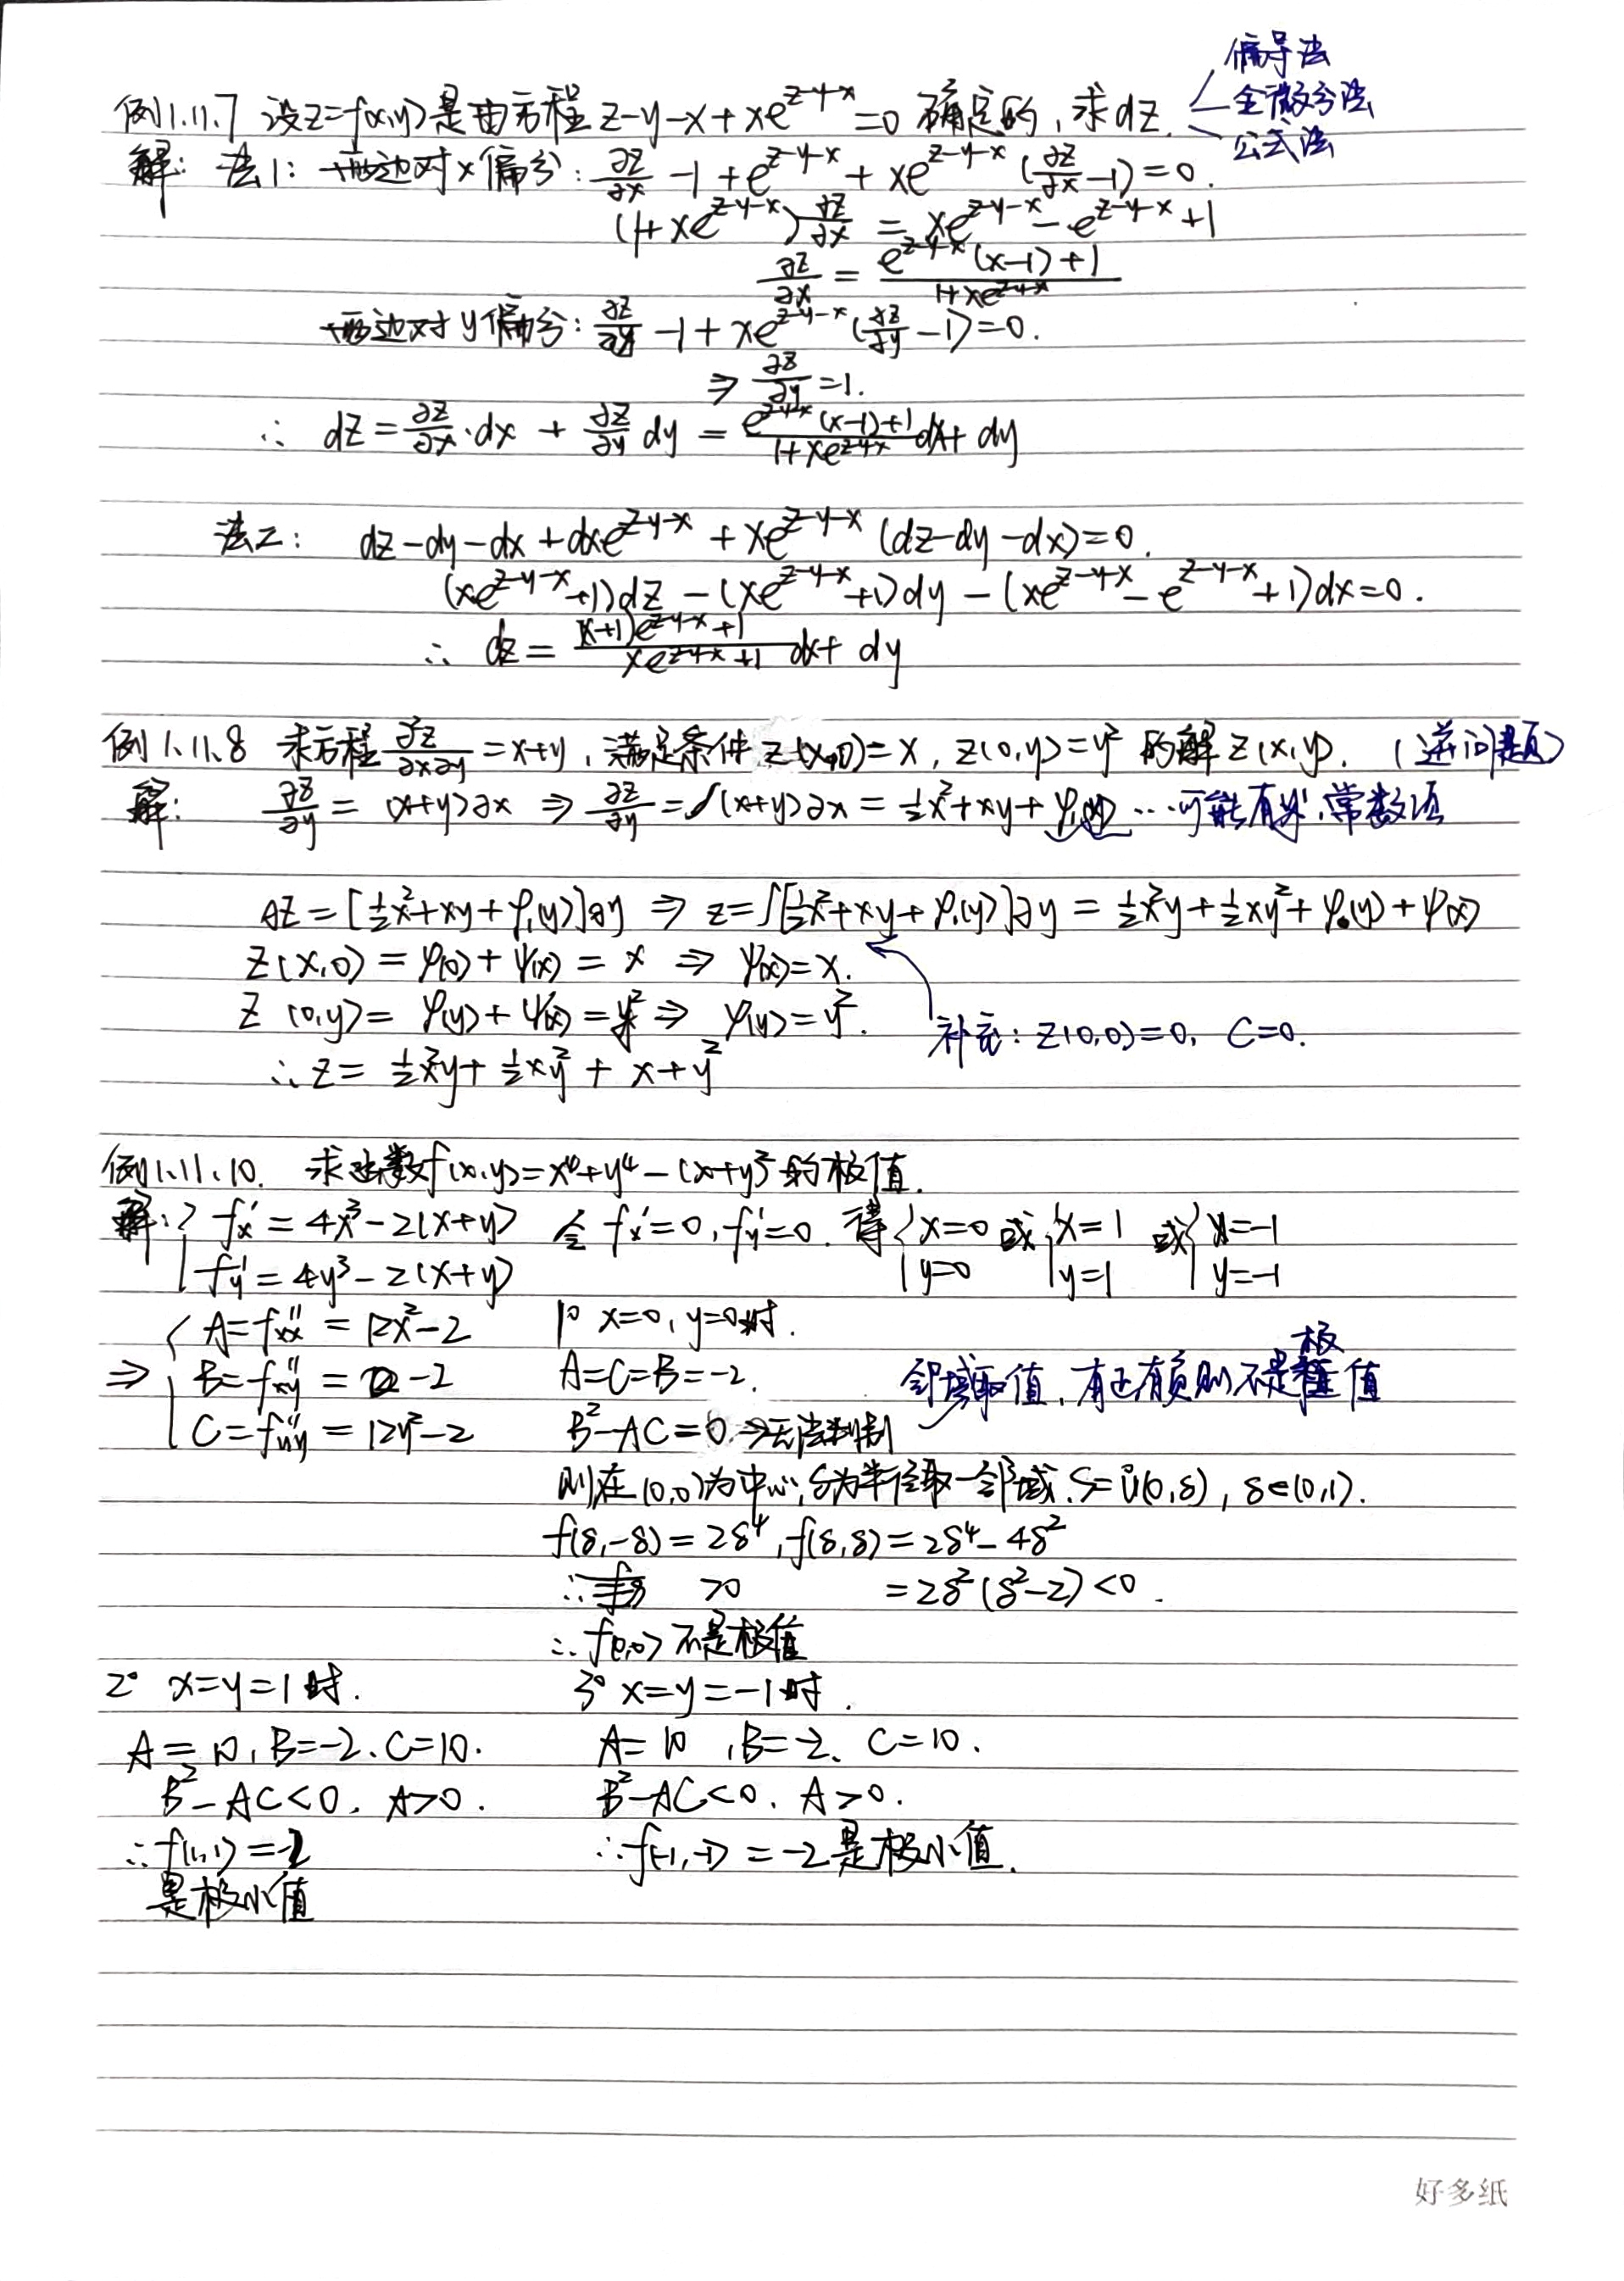 偏导法
例1.11.7 设z=f(x,y)是由方程 z-y-x+xe^{z-y-x}=0 确定的,求dz. 全微分法
公式法
解: 法1: 两边对x偏分: ∂z/∂x -1+e^{z-y-x}+xe^{z-y-x}(∂z/∂x-1)=0.
(1+xe^{z-y-x})∂z/∂x = xe^{z-y-x}-e^{z-y-x}+1
∂z/∂x = (e^{z-y-x}(x-1)+1)/(1+xe^{z-y-x})
两边对y偏分: ∂z/∂y -1+xe^{z-y-x}(∂z/∂y-1)=0.
⇒ ∂z/∂y=1.
∴ dz=∂z/∂x·dx + ∂z/∂y dy = (e^{z-y-x}(x-1)+1)/(1+xe^{z-y-x})dx+dy
法2: dz-dy-dx+dxe^{z-y-x}+xe^{z-y-x}(dz-dy-dx)=0.
(xe^{z-y-x}+1)dz-(xe^{z-y-x}+1)dy-(xe^{z-y-x}-e^{z-y-x}+1)dx=0.
∴ dz=((x+1)e^{z-y-x}+1)/(xe^{z-y-x}+1) dx+dy
例1.11.8 求方程 ∂²z/∂x∂y=x+y,满足条件 z(x,0)=x, z(0,y)=y² 的解z(x,y). (逆问题)
解: ∂z/∂y=(x+y)∂x ⇒ ∂z/∂y=∫(x+y)∂x=½x²+xy+φ₁(y) …可能有y,常数项
∂z=[½x²+xy+φ₁(y)]∂y ⇒ z=∫[½x²+xy+φ₁(y)]∂y=½x²y+½xy²+φ(y)+ψ(x)
z(x,0)=φ(0)+ψ(x)=x ⇒ ψ(x)=x.
z(0,y)=φ(y)+ψ(x)=y² ⇒ φ(y)=y². 补充: z(0,0)=0, C=0.
∴z=½x²y+½xy²+x+y²
例1.11.10. 求函数f(x,y)=x⁴+y⁴-(x+y)²的极值.
解: { fx'=4x³-2(x+y) 令fx'=0,fy'=0.得{x=0 或{x=1 或{x=-1
fy'=4y³-2(x+y) y=0 y=1 y=-1
{ A=fxx''=12x²-2 1° x=0,y=0时.
⇒ B=fxy''=-2 A=C=B=-2. 邻域取值,有正有负则不是极值
C=fyy''=12y²-2 B²-AC=0.→无法判别
则在(0,0)为中心,δ为半径取一邻域.S=Ů(0,δ), δ∈(0,1).
f(δ,-δ)=2δ⁴,f(δ,δ)=2δ⁴-4δ²
∴ >0 =2δ²(δ²-2)<0.
∴f(0,0)不是极值
2° x=y=1时. 3° x=y=-1时.
A=10,B=-2、C=10. A=10,B=-2、C=10.
B²-AC<0, A>0. B²-AC<0、A>0.
∴f(1,1)=-2 ∴f(-1,-1)=-2是极小值.
是极小值
好多纸